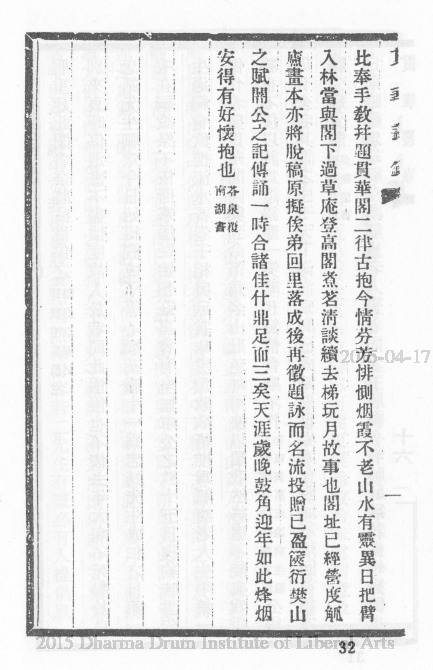 比奉手教幷題貫華閣二律古抱今情芬芳悱惻烟霞不老山水有靈異日把臂
入林當與閣下過草庵登高閣煮茗清談續去梯玩月故事也閣址已經營度觚
廬畫本亦將脫稿原擬俟弟回里落成後再徵題詠而名流投贈已盈篋衍樊山
之賦闇公之記傳誦一時合諸佳什鼎足而三矣天涯歲晚鼓角迎年如此烽烟
安得有好懷抱也
答泉復
南湖書
2015-04-17
十六
2015 Dharma Drum Institute of Liberal Arts
32